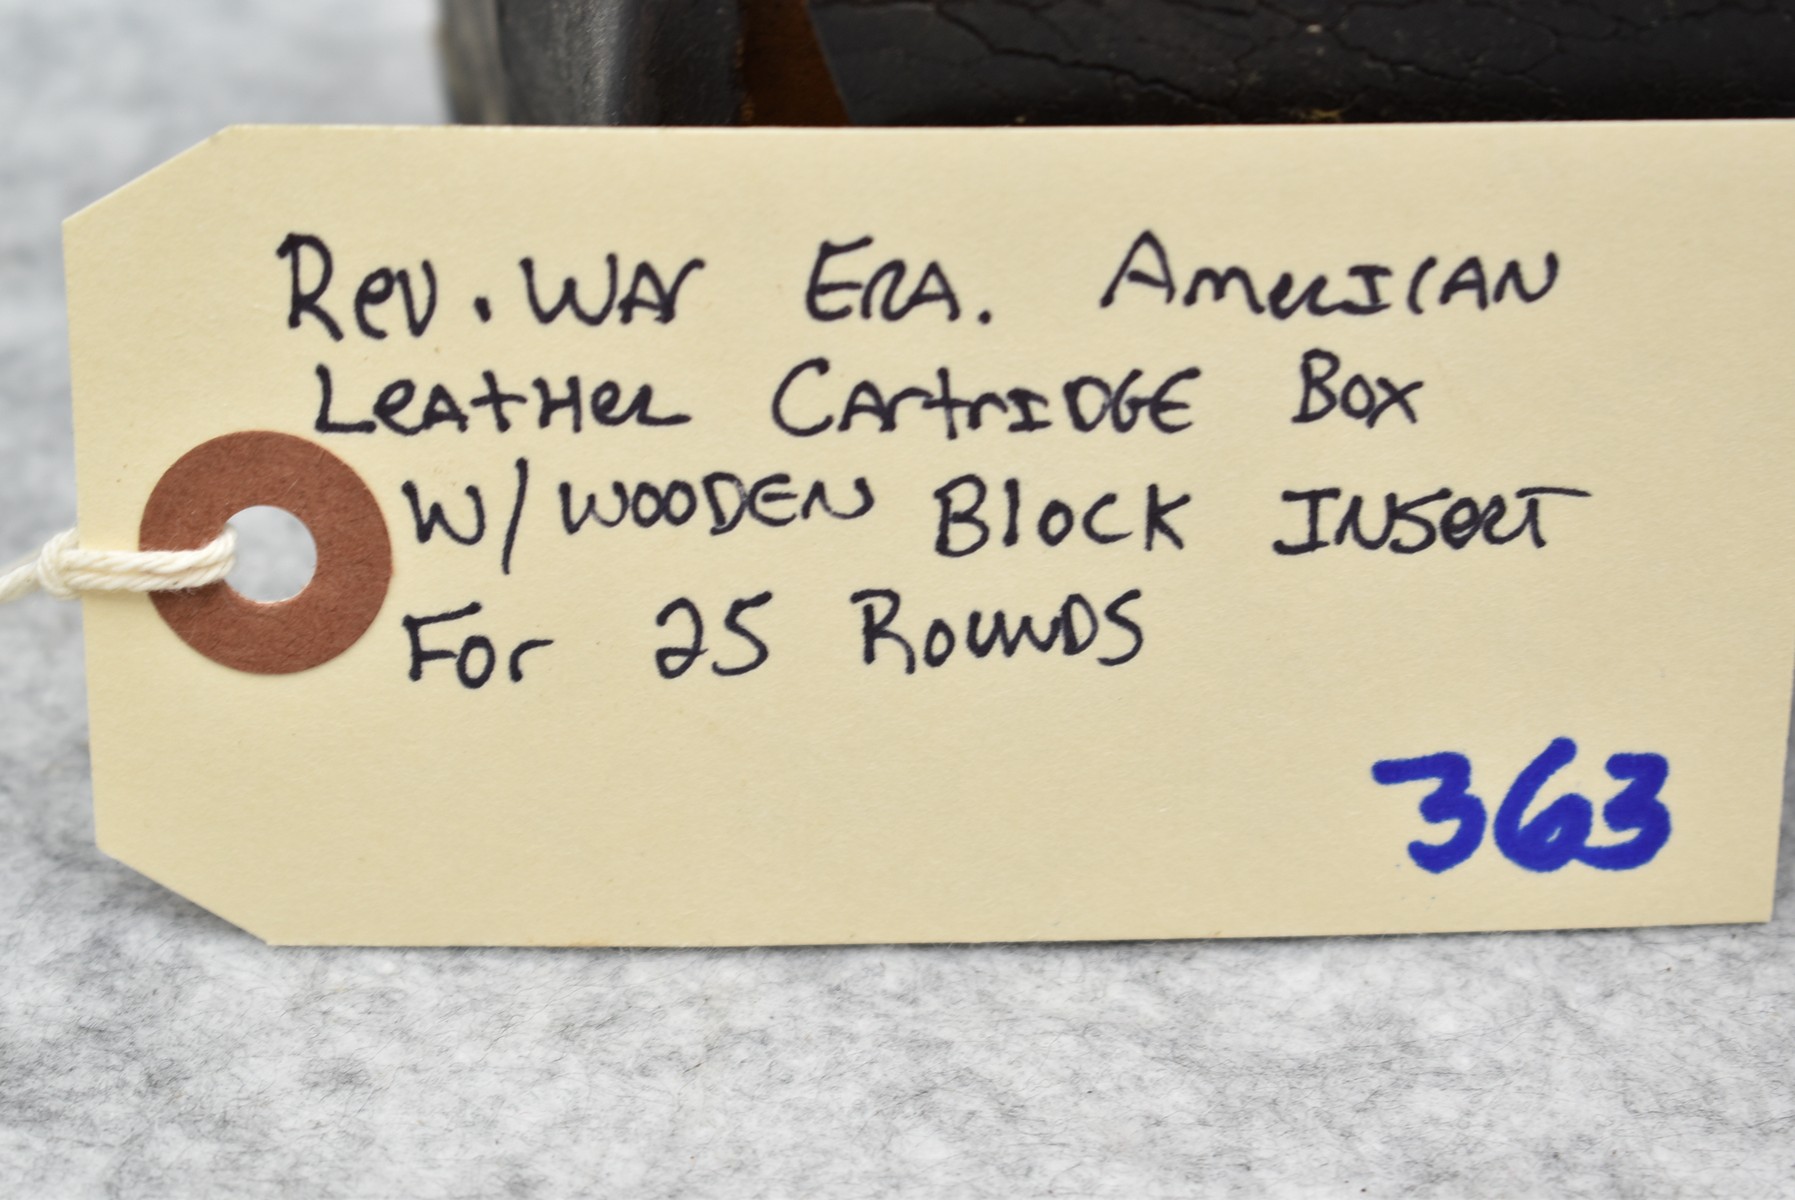 Rev. War Era. American
Leather Cartridge Box
w/wooden Block Insert
For 25 Rounds
363